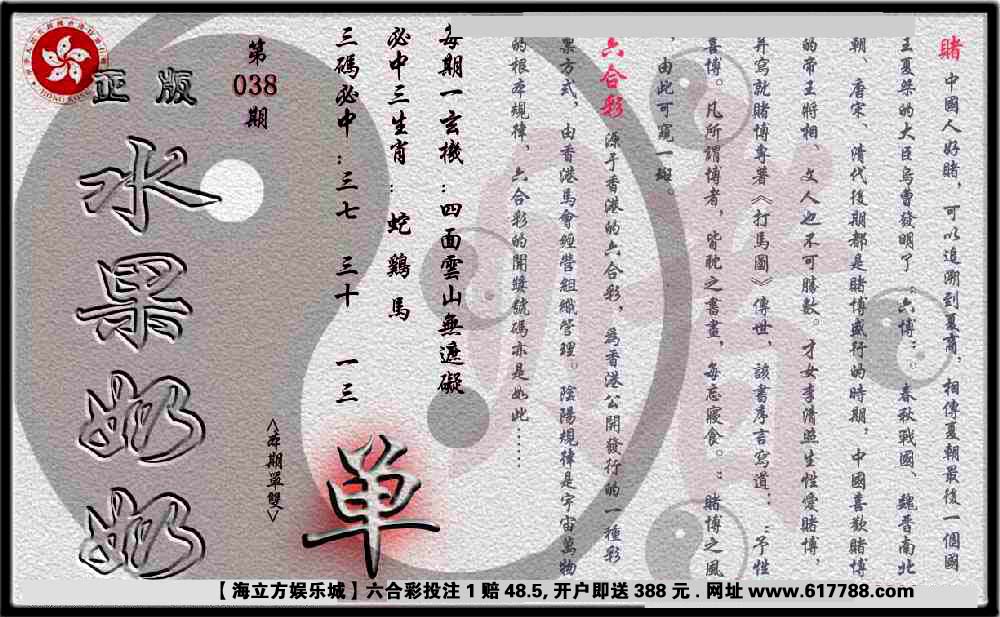 賭 中國人好賭，可以追溯到夏商，相傳夏朝最後一個國
王夏桀的大臣烏曹發明了"六博"；春秋戰國、魏晉南北
朝、唐宋、清代後期都是賭博盛行的時期，中國喜歡賭博
的帝王將相、文人也不可勝數。才女李清照生性愛賭博，
并寫就賭博專著《打馬圖》傳世，該書序言寫道："予性
喜博。凡所謂博者，皆耽之書畫，每忘寢食。"賭博之風
，由此可窺一斑。
六合彩 源于香港的六合彩，為香港公開發行的一種彩
票方式，由香港馬會經營組織管理。陰陽規律是宇宙萬物
的根本規律，六合彩的開獎號碼亦是如此……
每期一玄機：四面雲山無遮礙
必中三生肖：蛇 鷄 馬
三碼必中：三七 三十 一三
第
038
期
正版
水果奶奶
<本期單雙>
单
【海立方娱乐城】六合彩投注1赔48.5,开户即送388元.网址www.617788.com